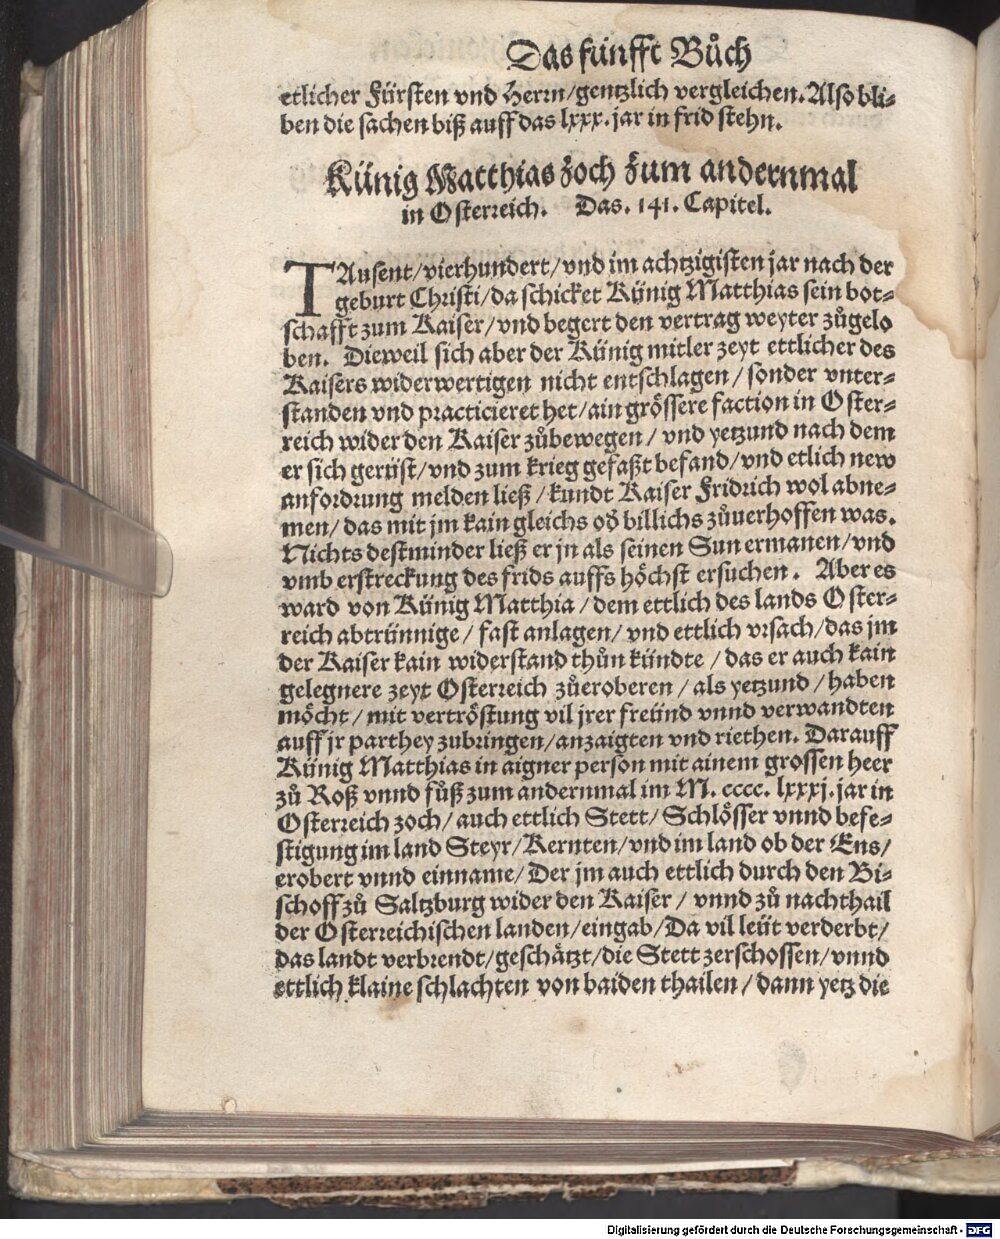 Das fünfft Bůch
etlicher Fürsten vnd Herrn/gentzlich vergleichen. Also bli⸗
ben die sachen biß auff das lxxx. jar in frid stehn.
Künig Matthias zoch zum andernmal
in Osterreich. Das. 141. Capitel.
TAusent/vierhundert/vnd im achtzigisten jar nach der
geburt Christi/da schicket Künig Matthias sein bot⸗
schafft zum Kaiser/vnd begert den vertrag weyter zůgelo
ben. Dieweil sich aber der Künig mitler zeyt ettlicher des
Kaisers widerwertigen nicht entschlagen/sonder vnter⸗
standen vnd practicieret het/ain grössere faction in Oster⸗
reich wider den Kaiser zůbewegen/vnd yetzund nach dem
er sich gerüst/vnd zum krieg gefaßt befand/vnd etlich new
anfordrung melden ließ/kundt Kaiser Fridrich wol abne⸗
men/das mit jm kain gleichs oď billichs zůuerhoffen was.
Nichts destminder ließ er jn als seinen Sun ermanen/vnd
vmb erstreckung des frids auffs höchst ersuchen. Aber es
ward von Künig Matthia/dem ettlich des lands Oster⸗
reich abtrünnige/fast anlagen/vnd ettlich vrsach/das jm
der Kaiser kain widerstand thůn kündte/das er auch kain
gelegnere zeyt Osterreich zůeroberen/als yetzund/haben
möcht/mit vertröstung vil jrer freünd vnnd verwandten
auff jr parthey zubringen/anzaigten vnd riethen. Darauff
Künig Matthias in aigner person mit ainem grossen heer
zů Roß vnnd fůß zum andernmal im M. cccc. lxxxj. jar in
Osterreich zoch/auch ettlich Stett/Schlösser vnnd befe⸗
stigung im land Steyr/Kernten/vnd im land ob der Ens/
erobert vnnd einname/Der jm auch ettlich durch den Bi⸗
schoff zů Saltzburg wider den Kaiser/vnnd zů nachthail
der Osterreichischen landen/eingab/Da vil leüt verderbt/
das landt verbrendt/geschätzt/die Stett zerschossen/vnnd
ettlich klaine schlachten von baiden thailen/dann yetz die
Digitalisierung gefördert durch die Deutsche Forschungsgemeinschaft - DFG